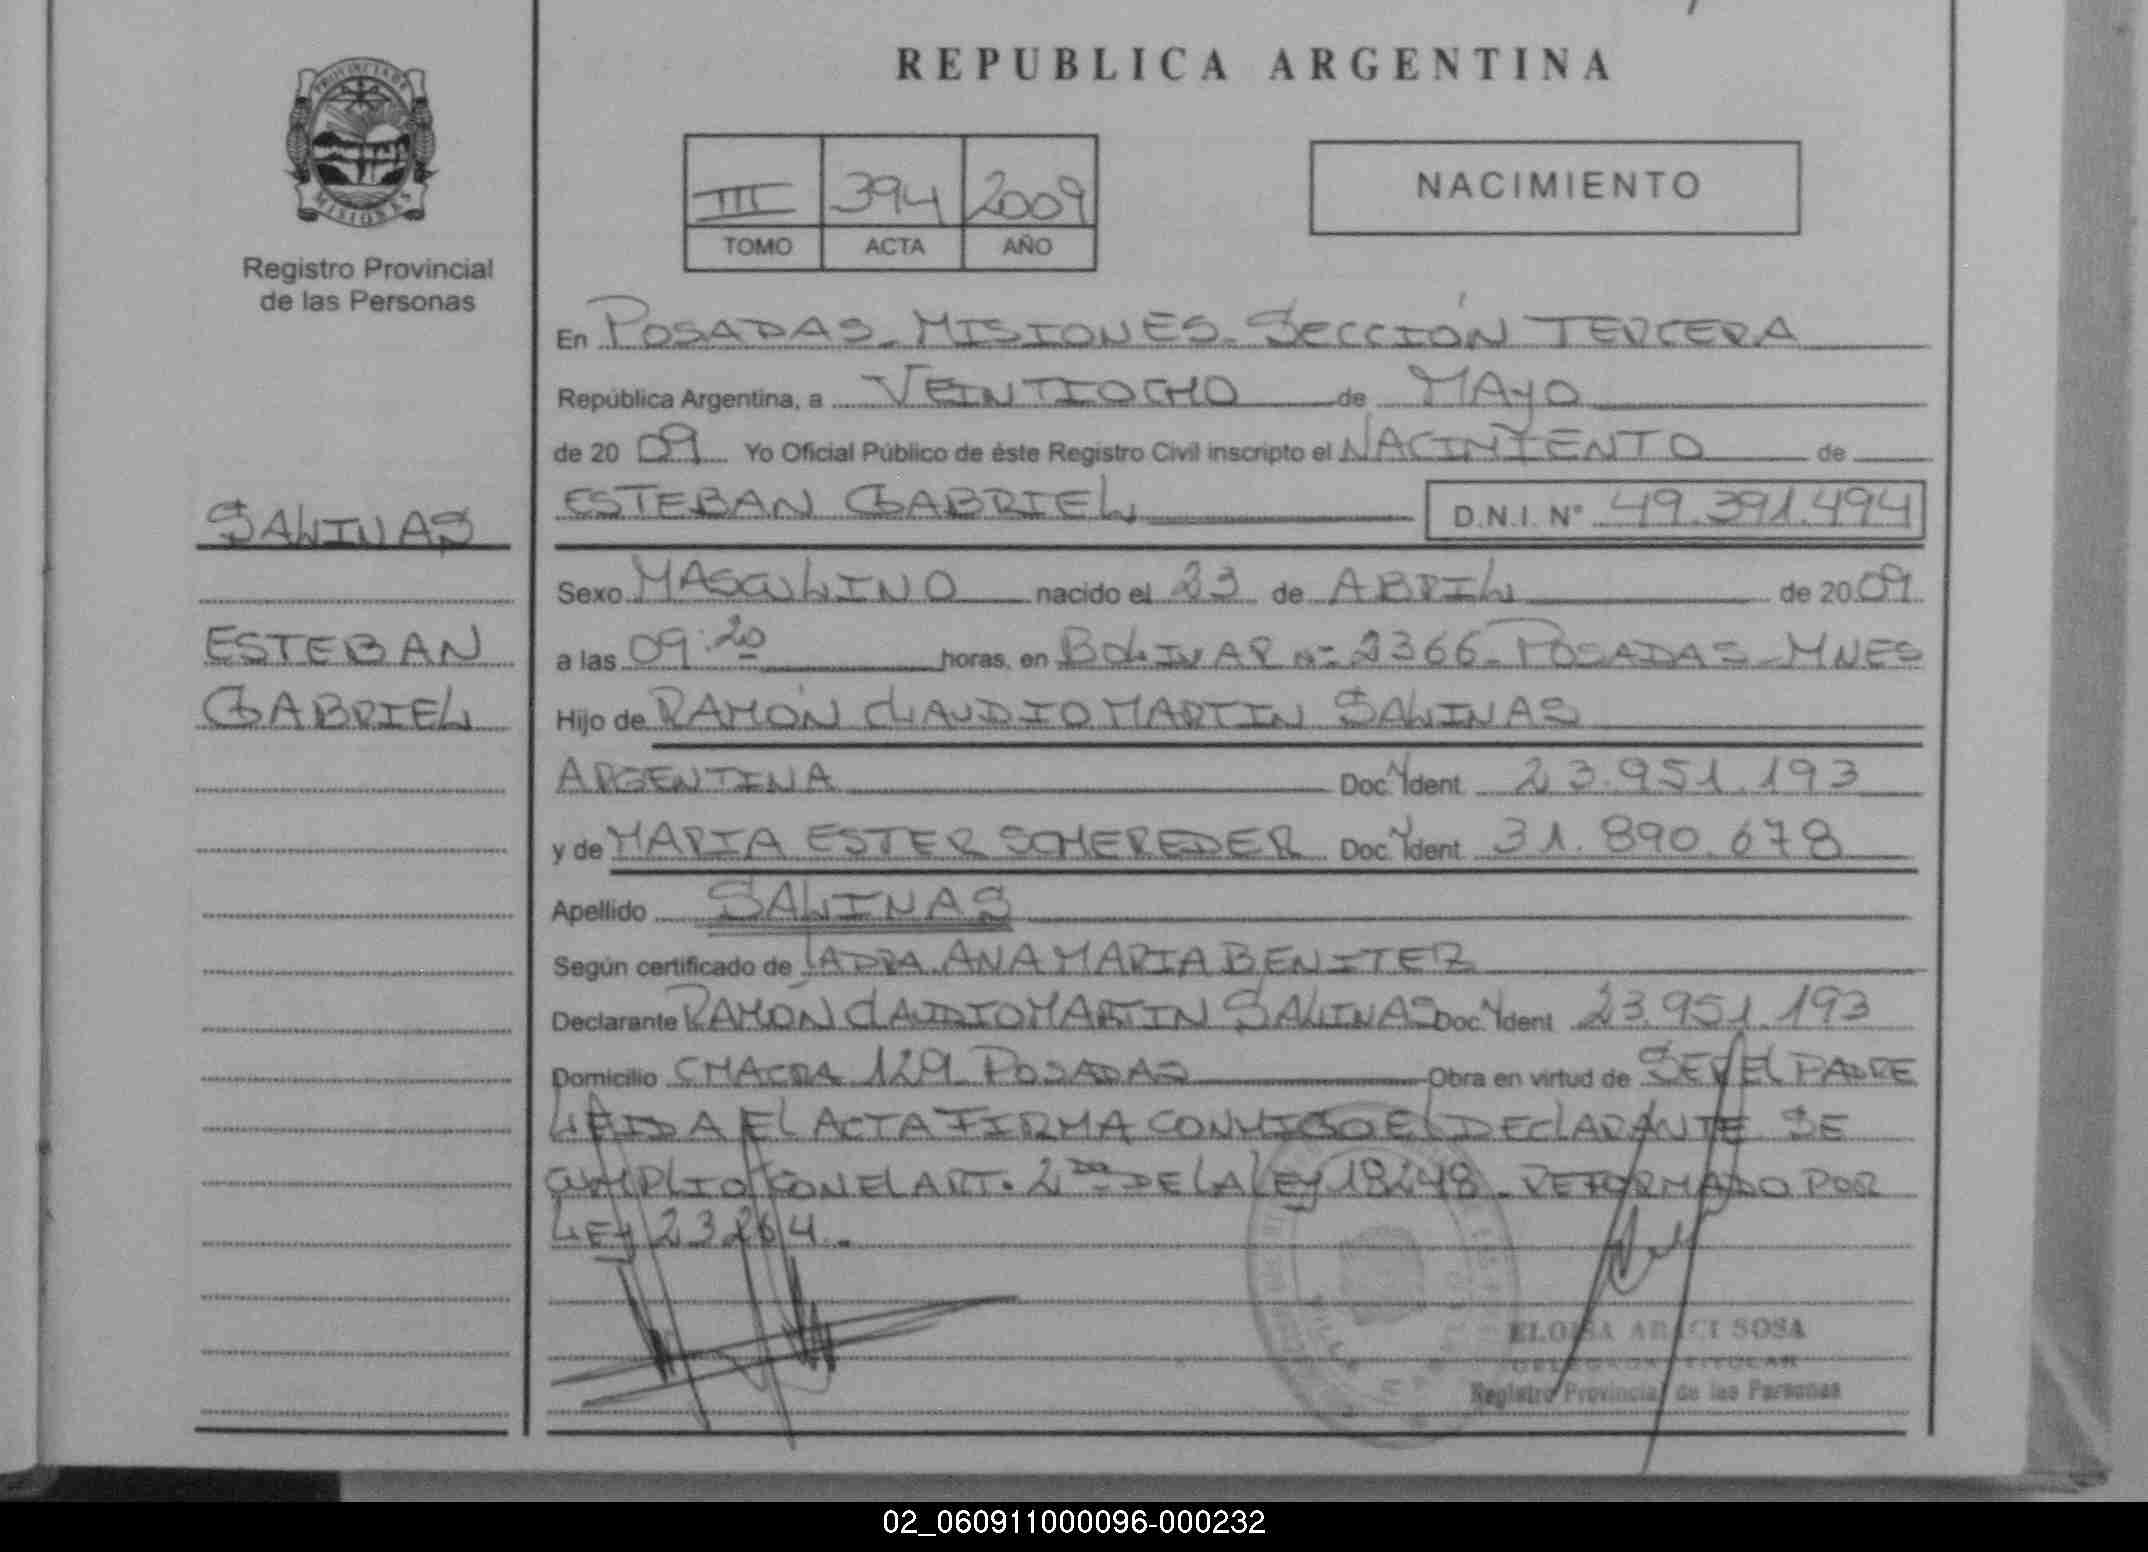 REPUBLICA ARGENTINA
PROVINCIA DE
MISIONES
Registro Provincial
de las Personas
III 394 2009
TOMO ACTA AÑO
NACIMIENTO
En POSADAS - MISIONES - SECCIÓN TERCERA
República Argentina, a VEINTIOCHO de MAYO
de 20 09 Yo Oficial Público de éste Registro Civil inscripto el NACIMIENTO de
SALINAS
ESTEBAN GABRIEL D.N.I. N° 49.391.494
Sexo MASCULINO nacido el 23 de ABRIL de 20 09
ESTEBAN
a las 09:20 horas, en BOLIVAR Nº 2366 - POSADAS - MNES
GABRIEL
Hijo de RAMÓN CLAUDIO MARTIN SALINAS
ARGENTINA Doc. Ident. 23.951.193
y de MARIA ESTER SCHEREDER Doc. Ident. 31.890.678
Apellido SALINAS
Según certificado de LA DRA. ANA MARIA BENITEZ
Declarante RAMÓN CLAUDIO MARTIN SALINAS Doc. Ident. 23.951.193
Domicilio CHACRA 129 - POSADAS Obra en virtud de SER EL PADRE
LEIDA EL ACTA FIRMA CONMIGO EL DECLARANTE SE
CUMPLIO CON EL ART. 2do DE LA LEY 18248 - REFORMADO POR
LEY 23264.-
ELOISA ARACI SOSA
DELEGADA TITULAR
Registro Provincial de las Personas
02_060911000096-000232